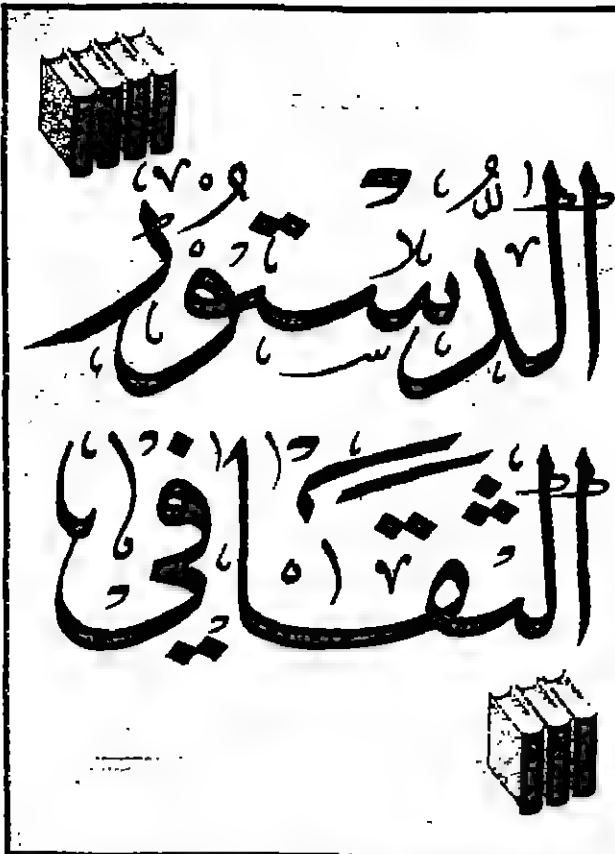 الدُّستُور
الثقافي